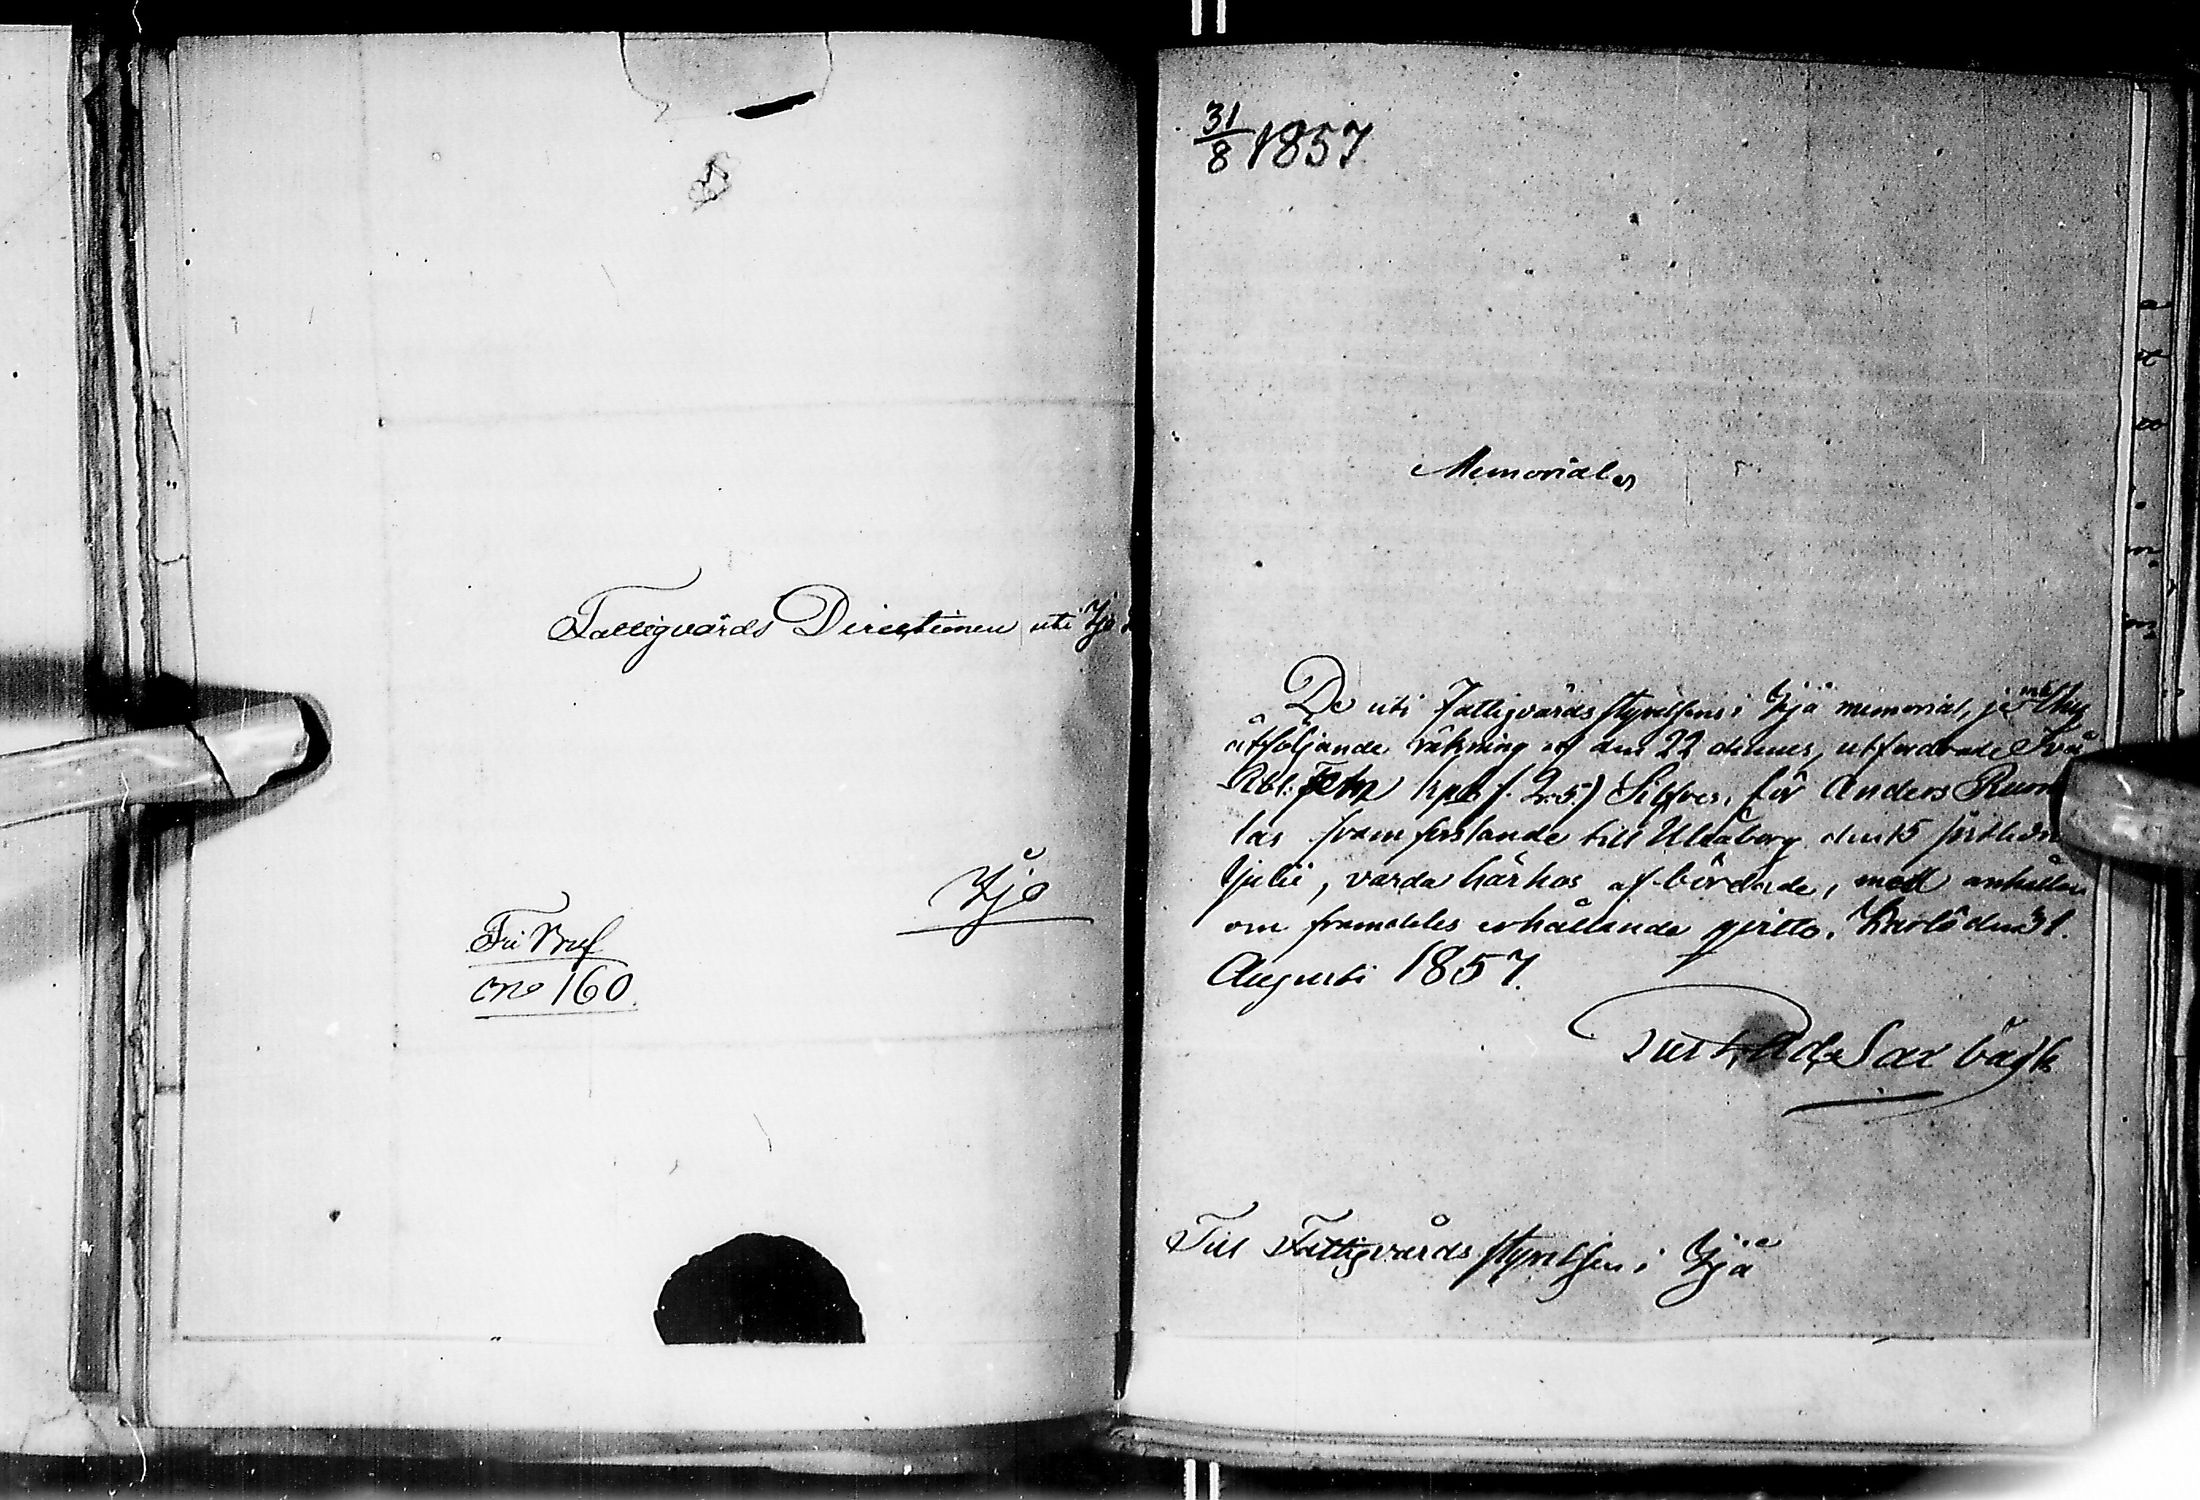 Fattigvårds Directionen uti Ijo
Ijo
Fri Bref
No 160
31/8 1857.
Memorial
De uti Fattigvårds styrelsens i Ijå memorial, jemte
åtföljande räkning af den 22 dennes, utfordrade Två
Rbl. Fem kpk (2.5) Silfver, för Anders
las framforslande till Uleåborg den 15 sistledne
Julii, varda härhos af-bördade, med anhållan
om framdeles erhållande qvitto. Karlö den 31.
Augusti 1857.
Gust. Ad. Saxbäck
Till Fattigvårds styrelsen i Ijå